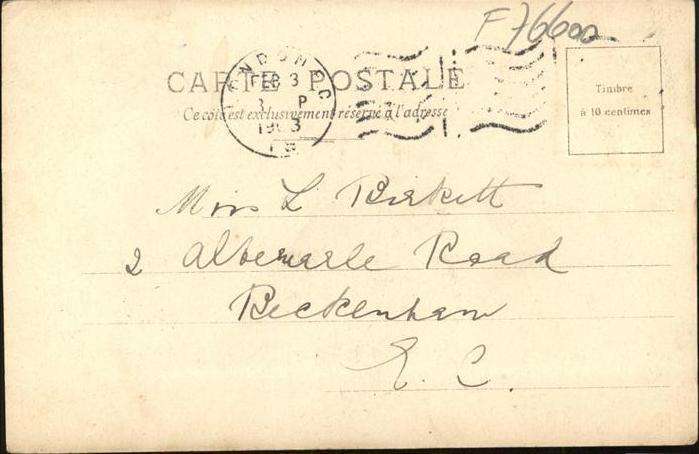 F76600
LONDON.E.C
FEB 3
3 P
1903
CARTE POSTALE
Timbre
à 10 centimes
Ce côté est exclusivement réservé à l'adresse
Miss L Birkett
2 Albemarle Road
Beckenham
E. C.